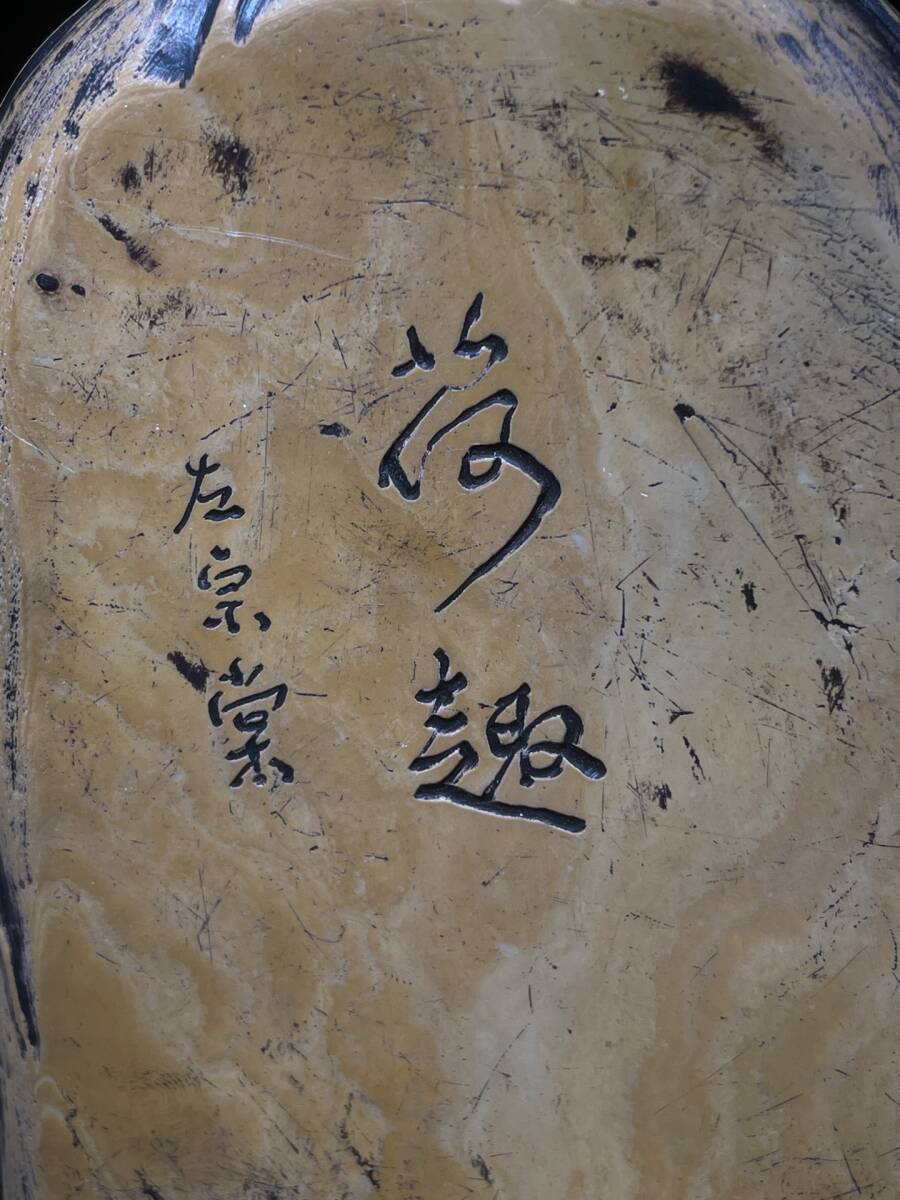 荷趣
左宗棠